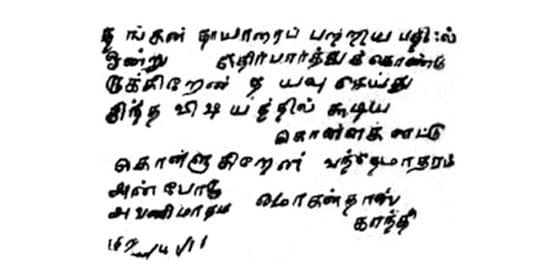 தங்கள் தாயாரைப் பற்றிய பதில்
ஒன்று எதிர்பார்த்துக்கொண்டி
ருக்கிறேன் தயவு செய்து
இந்த விஷயத்தில் கூடிய
கொள்ளக்
கொள்ளுகிறேன் வந்தேமாதரம்
அன்போடு
மோகன்தாஸ்
காந்தி